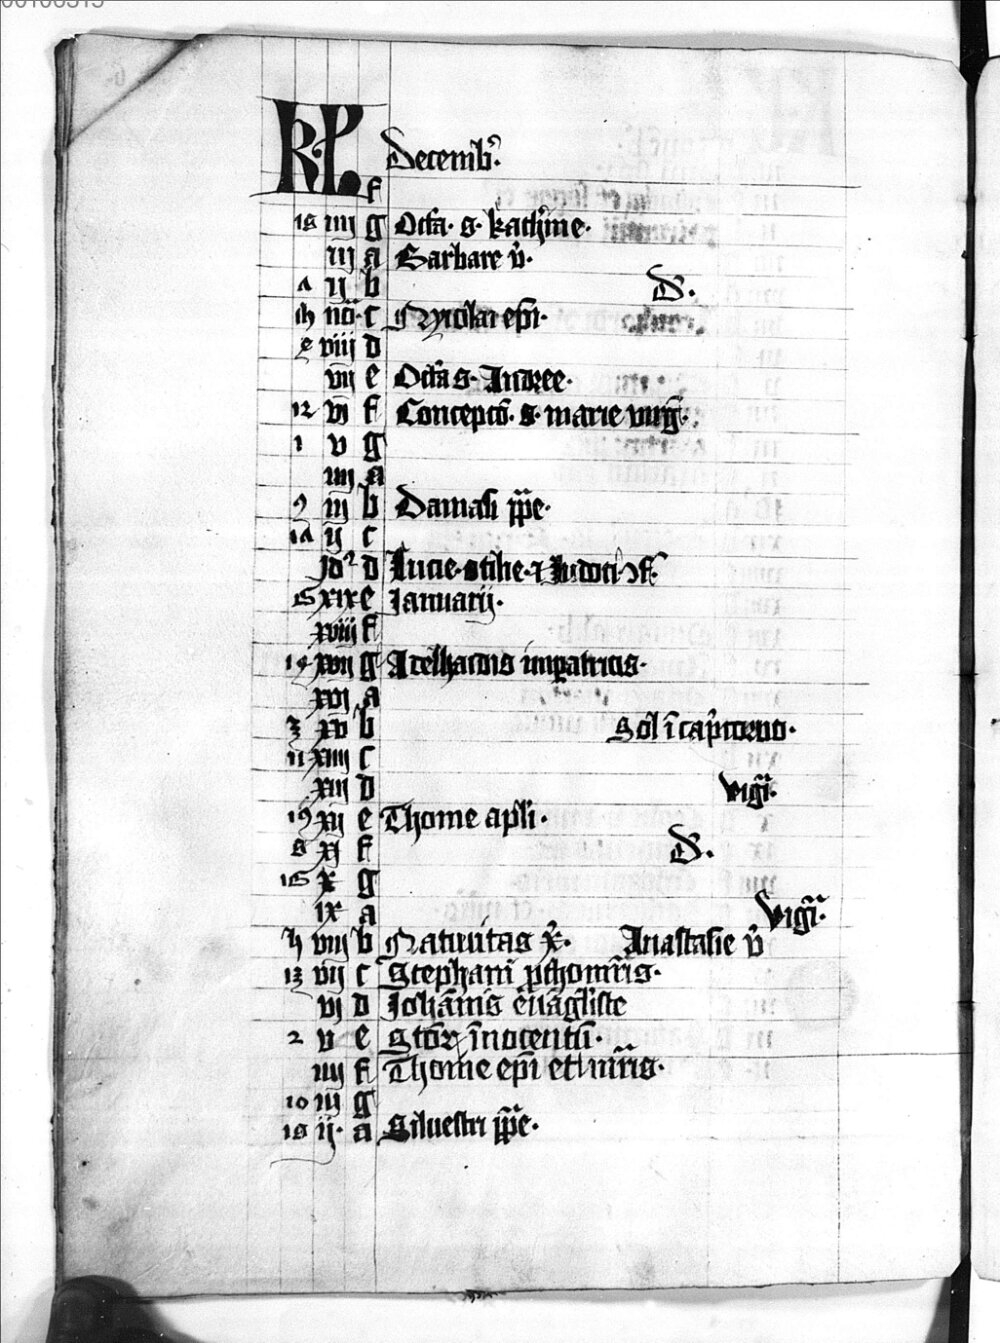 KL Decemb᷒.
f
18 iiij g Octā. s. kath̾ine.
iij a Barbare v̾.
ij b D.
no᷒. c Nycolai ep̄i.
viij d
vij e Octā s. Andree.
12 vj f Concepcō. s. marie virg̾.
1 v g
iiij a
9 iij b Damasi pp̄e.
ij c
jd᷒ d Lucie. otilie. ⁊ Judoci ɔf.
xix e Januarij.
xviij f
xvij g Adelhaidis impatricis.
xvj a
3 xv b Sol ī cap̾corno.
11 xiiij c
xiij d vigi̅.
19 xij e Thome apl̄i.
8 xj f D.
16 x g
ix a vigi̅.
viij b Natiuitas x̾. Anastasie v̾
13 vij c Stephani p̄thom̄ris.
vj d Joh̄annis ew̄āgliste
2 v e Sctōꝝ īnocentū.
iiij f Thome ep̄i et m̄ris.
10 iij g
18 ij. a Siluestri pp̄e.